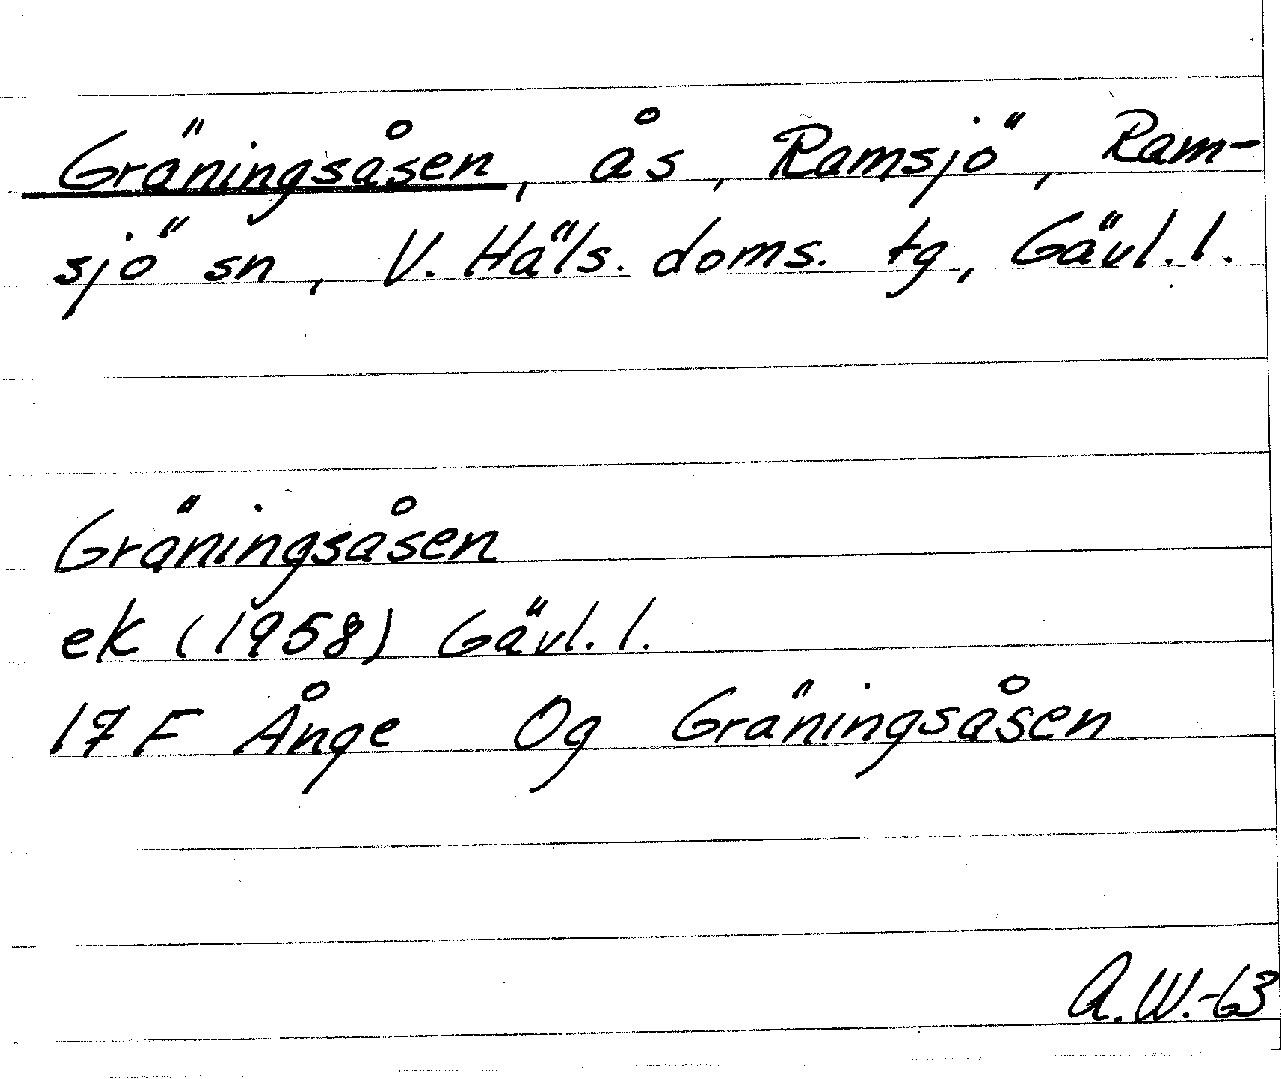 Gräningsåsen, ås, Ramsjö, Ram-
sjö sn, V. Häls. doms. tg, Gävl. l.
Gräningsåsen
ek (1958) Gävl. l.
17 F Ånge Og Gräningsåsen
A.W.-63